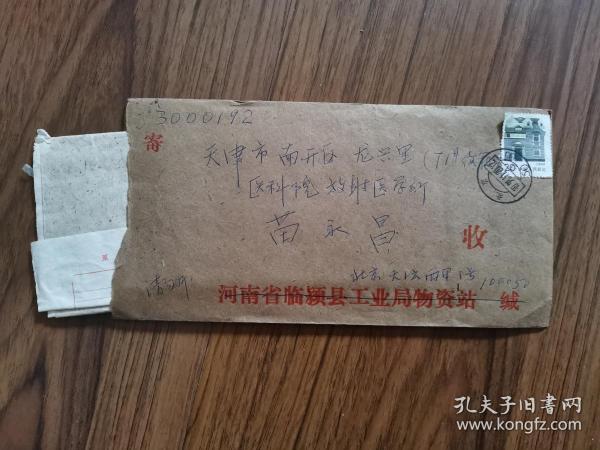 3000192
寄
天津市南开区
医科院放射医学所
苗永昌
收
北京天坛西里1号 100050
河南省临颍县工业局物资站 缄
孔夫子旧书网
www.kongfz.com